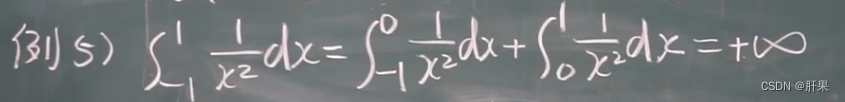 例5) ∫₋₁¹ 1/x² dx = ∫₋₁⁰ 1/x² dx + ∫₀¹ 1/x² dx = +∞
CSDN @肝果